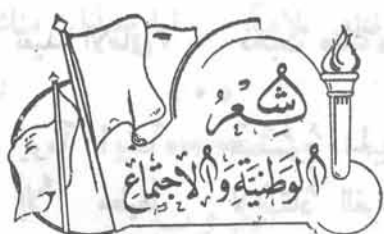 شِعْرُ
الوَطنيَّةِ وَالاجتماعِ